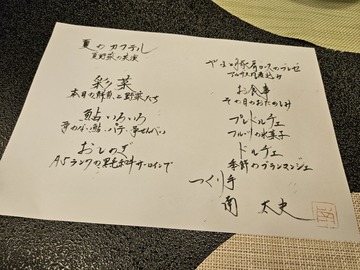 夏のカクテル
夏野菜の共演
彩菜
本日の鮮魚と野菜たち
鮎いろいろ
鮎 パテ 骨せんべい
おしのぎ
A5ランクの黒毛和牛サーロインで
やまと豚肩ロースのブレゼ
煮込み
お食事
その日のおたのしみ
プレドルチェ
フルーツの氷菓子
ドルチェ
季節のブランマンジェ
つくり手
南 太史